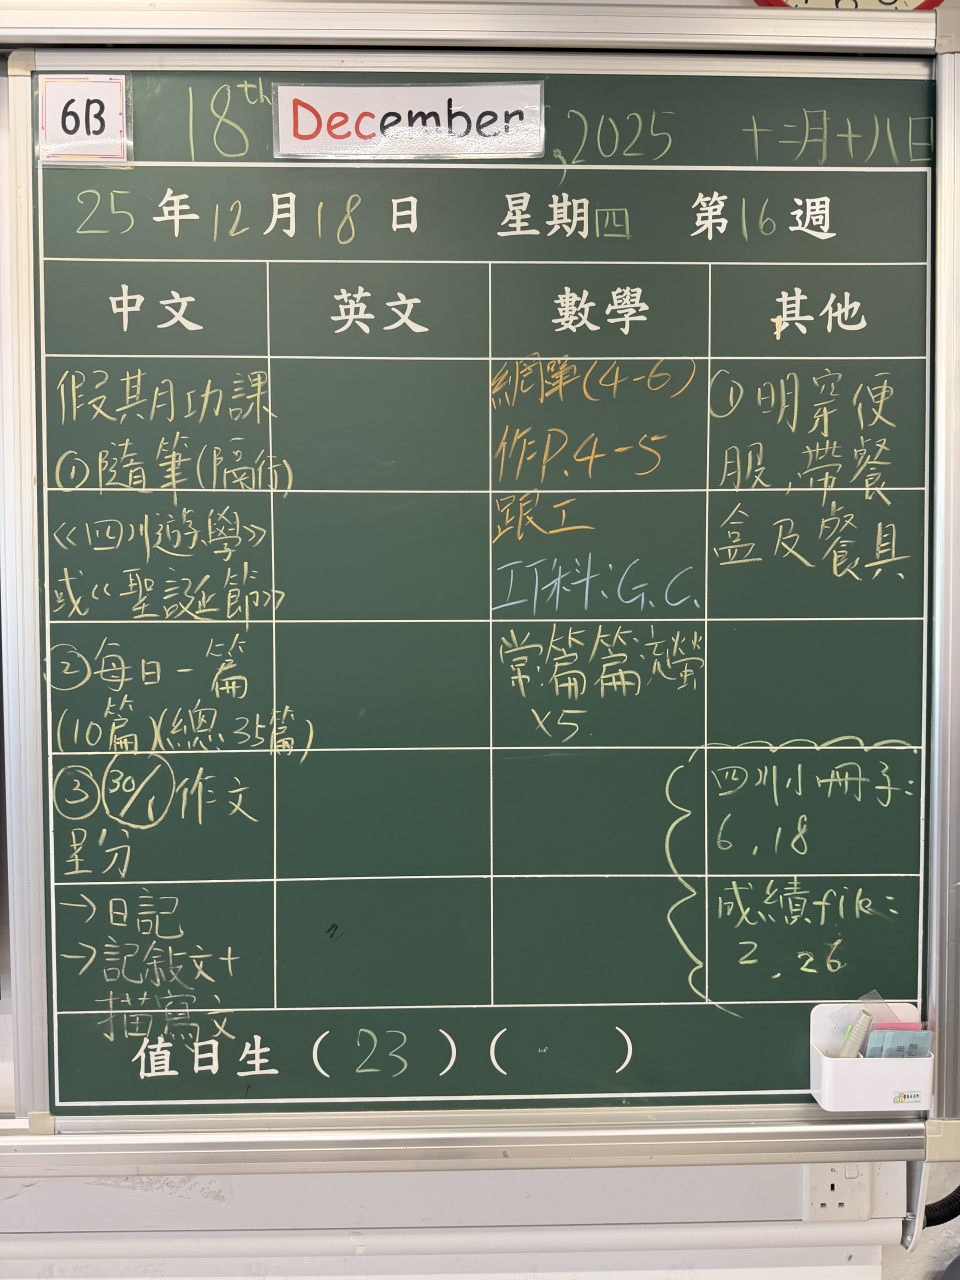 6B 18th December, 2025 十二月十八日
25年12月18日 星期四 第16週
中文 英文 數學 其他
假期功課
①隨筆(隔行)
《四川遊學》
或《聖誕節》
②每日一篇
(10篇)(總35篇)
③30/1作文
呈分
→日記
→記敘文+
描寫文
網單(4-6)
作P.4-5
跟工
IT科:G.C.
常:篇篇流螢
x5.
①明穿便
服,帶餐
盒及餐具
四川小冊子:
6,18
成績file:
2,26
值日生(23)( )